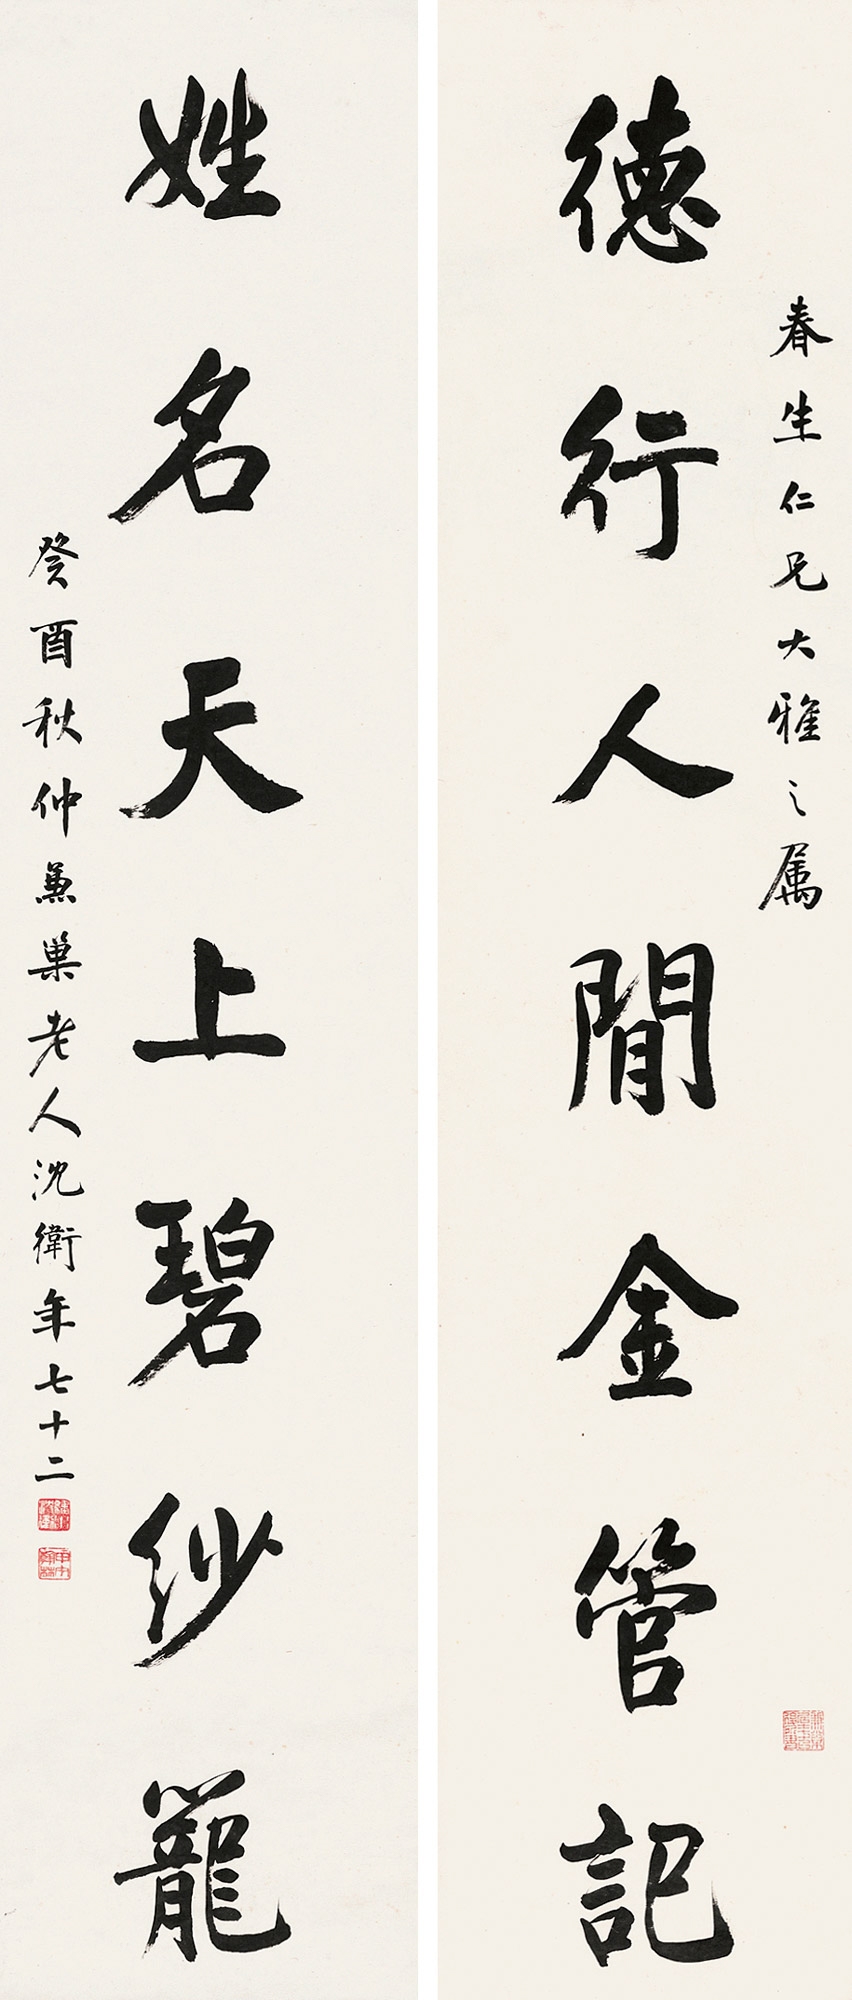 春生仁兄大雅之属
德行人間金管記
姓名天上碧紗籠
癸酉秋仲兼巢老人沈衛年七十二